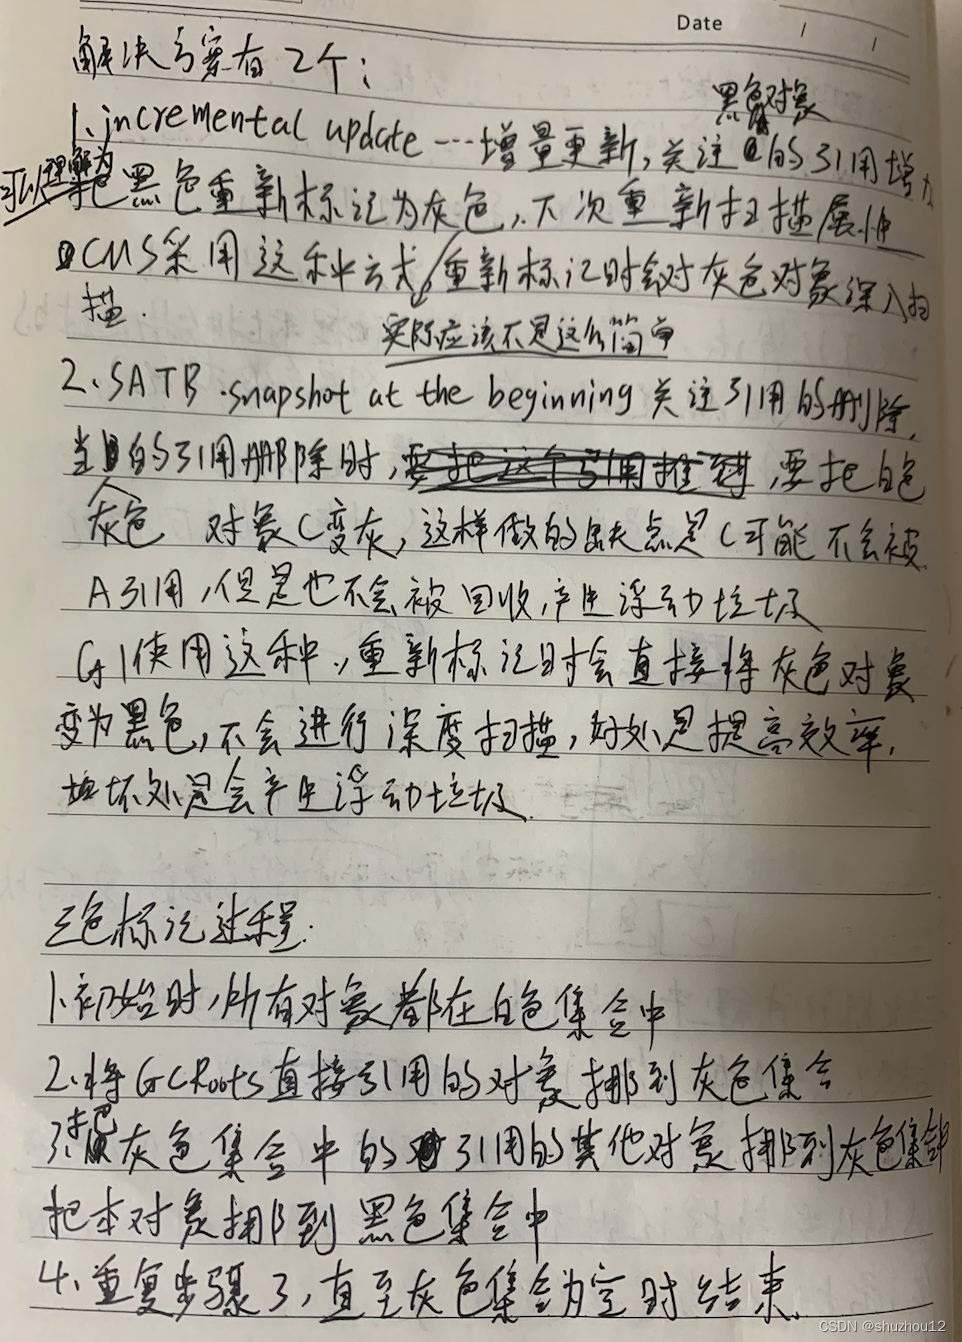 Date / /
解决方案有2个:
黑色对象
1、incremental update ---增量更新,关注 的引用增加
可以理解为
把黑色重新标记为灰色,下次重新扫描属性
CMS采用这种方式,重新标记时会对灰色对象深入扫
描.
实际应该不是这么简单
2、SATB .snapshot at the beginning 关注引用的删除,
当 的引用删除时, ,要把白色
灰色 对象C变灰,这样做的缺点是C可能不会被
A引用,但是也不会被回收,产生浮动垃圾
G1使用这种.,重新标记时会直接将灰色对象
变为黑色,不会进行深度扫描,好处是提高效率,
坏处是会产生浮动垃圾.
三色标记过程.
1、初始时,所有对象都在白色集合中
2、将GCRoots直接引用的对象挪到灰色集合
3、把灰色集合中的 引用的其他对象挪到灰色集合中
把本对象挪到黑色集合中
4、重复步骤3,直至灰色集合为空时结束.
CSDN @shuzhou12